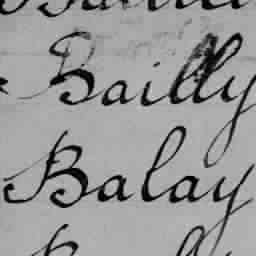 Bailly
Balay